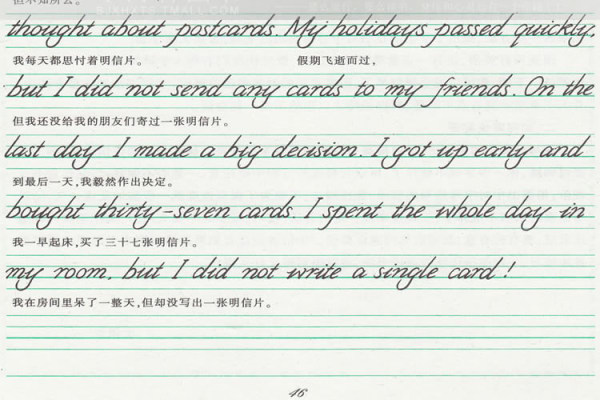 thought about postcards. My holidays passed quickly,
我每天都思忖着明信片。 假期飞逝而过,
but I did not send any cards to my friends. On the
但我还没给我的朋友们寄过一张明信片。
last day I made a big decision. I got up early and
到最后一天,我毅然作出决定。
bought thirty-seven cards. I spent the whole day in
我一早起床,买了三十七张明信片。
my room, but I did not write a single card!
我在房间里呆了一整天,但却没写出一张明信片。
46